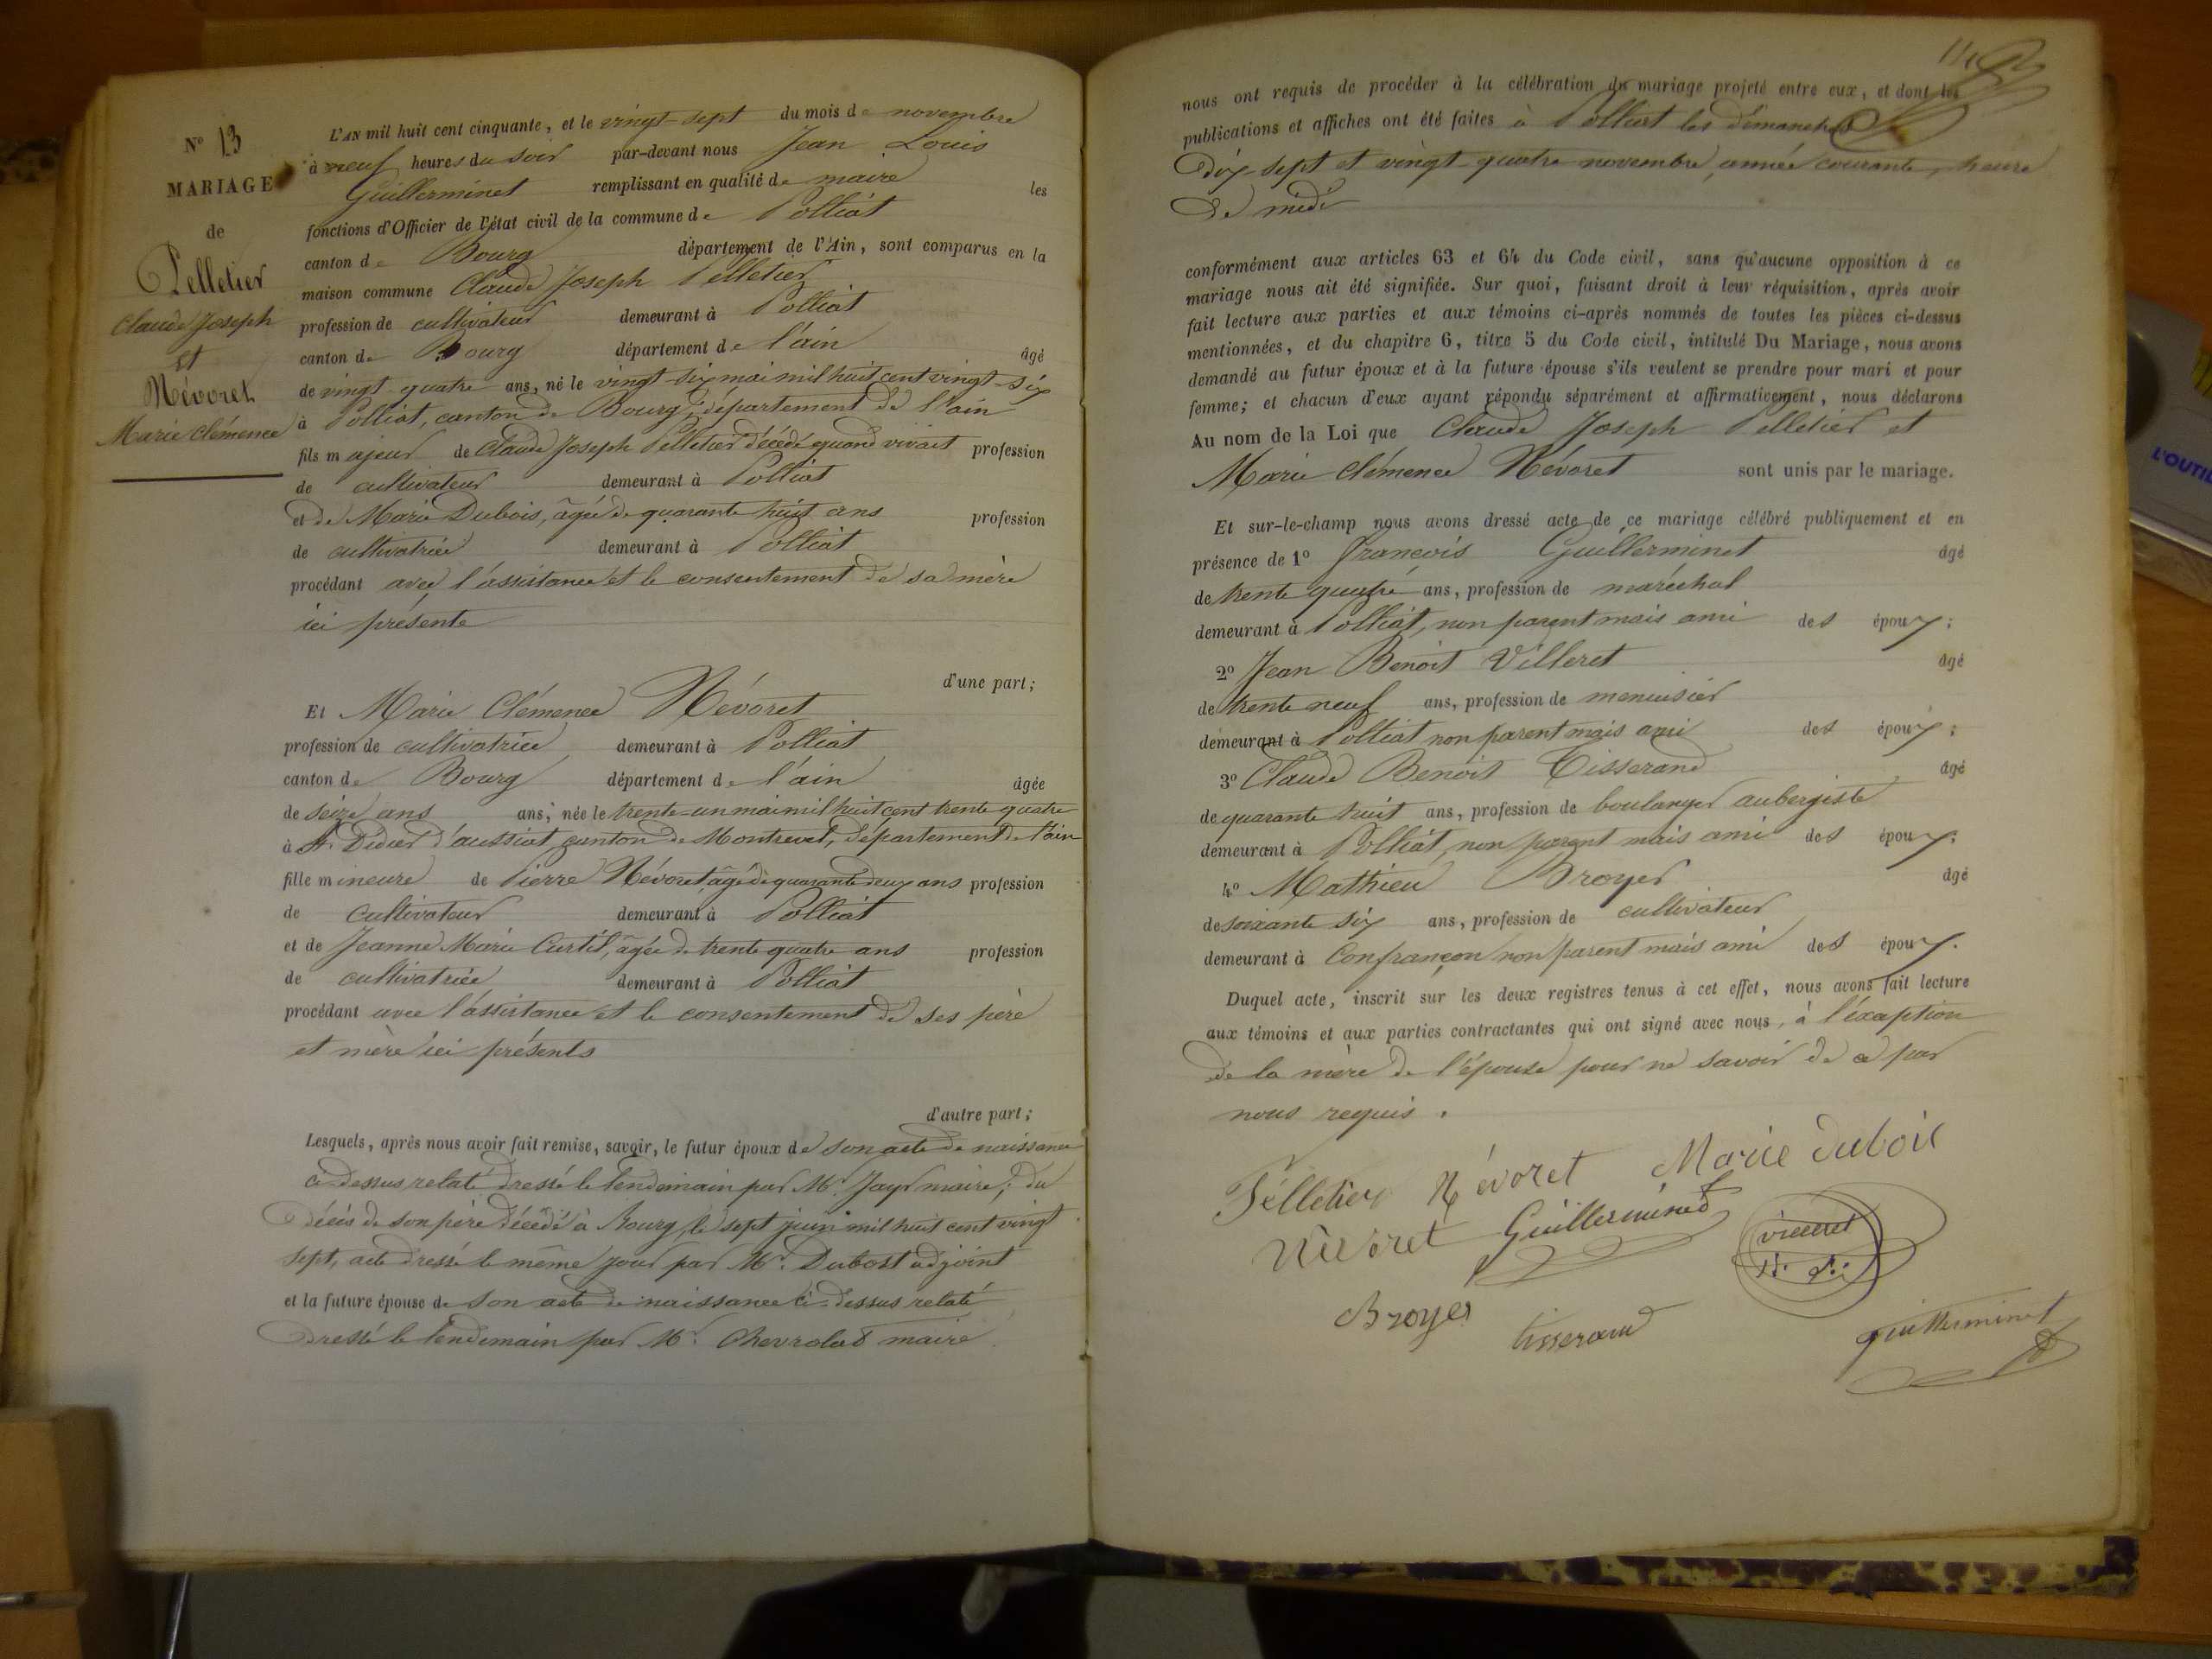 N° 13
MARIAGE
de
Pelletier
Claude Joseph
et
Névoret
Marie Clémence
L'AN mil huit cent cinquante, et le vingt-sept du mois de novembre
à neuf heures du soir par-devant nous Jean Louis
Guillerminet remplissant en qualité de maire les
fonctions d'Officier de l'état civil de la commune de Polliat
canton de Bourg département de l'Ain, sont comparus en la
maison commune Claude Joseph Pelletier
profession de cultivateur demeurant à Polliat
canton de Bourg département de l'ain âgé
de vingt quatre ans, né le vingt-six mai mil huit cent vingt-six
à Polliat, canton de Bourg, département de l'ain
fils majeur de Claude Joseph Pelletier décédé quand vivait profession
de cultivateur demeurant à Polliat
et de Marie Dubois, âgée de quarante huit ans profession
de cultivatrice demeurant à Polliat
procédant avec l'assistance et le consentement de sa mère
ici présente
d'une part;
Et Marie Clémence Névoret
profession de cultivatrice demeurant à Polliat
canton de Bourg département de l'ain âgée
de seize ans ans, née le trente-un mai mil huit cent trente quatre
à St Didier d'aussiat, canton de Montrevel, département de l'ain
fille mineure de Pierre Névoret âgé de quarante deux ans profession
de cultivateur demeurant à Polliat
et de Jeanne Marie Curtil, âgée de trente quatre ans profession
de cultivatrice demeurant à Polliat
procédant avec l'assistance et le consentement de ses père
et mère ici présents
d'autre part;
Lesquels, après nous avoir fait remise, savoir, le futur époux de son acte de naissance
ci-dessus relaté dressé le lendemain par Mr. Jayr maire, du
décès de son père décédé à Bourg, le sept juin mil huit cent vingt
sept, acte dressé le même jour par Mr. Dubost adjoint
et la future épouse de son acte de naissance ci-dessus relaté
dressé le lendemain par Mr. Chevrolat maire
nous ont requis de procéder à la célébration du mariage projeté entre eux, et dont les
publications et affiches ont été faites à Polliat les dimanches
dix-sept et vingt-quatre novembre, année courante, heure
de midi
conformément aux articles 63 et 64 du Code civil, sans qu'aucune opposition à ce
mariage nous ait été signifiée. Sur quoi, faisant droit à leur réquisition, après avoir
fait lecture aux parties et aux témoins ci-après nommés de toutes les pièces ci-dessus
mentionnées, et du chapitre 6, titre 5 du Code civil, intitulé Du Mariage, nous avons
demandé au futur époux et à la future épouse s'ils veulent se prendre pour mari et pour
femme; et chacun d'eux ayant répondu séparément et affirmativement, nous déclarons
Au nom de la Loi que Claude Joseph Pelletier et
Marie Clémence Névoret sont unis par le mariage.
Et sur-le-champ nous avons dressé acte de ce mariage célébré publiquement et en
présence de 1° François Guillerminet âgé
de trente quatre ans, profession de maréchal
demeurant à Polliat, non parent mais ami des époux;
2° Jean Benoit Villeret âgé
de trente neuf ans, profession de menuisier
demeurant à Polliat non parent mais ami des époux;
3° Claude Benoit Tisserand âgé
de quarante huit ans, profession de boulanger aubergiste
demeurant à Polliat, non parent mais ami des époux;
4° Mathieu Broyer âgé
de soixante six ans, profession de cultivateur
demeurant à Confrançon non parent mais ami des époux.
Duquel acte, inscrit sur les deux registres tenus à cet effet, nous avons fait lecture
aux témoins et aux parties contractantes qui ont signé avec nous, à l'éxaption
de la mère de l'épouse pour ne savoir de ce par
nous requis.
Pélletier Névoret Marie dubois
Névoret Guillerminet
vileret
Broyer tisserand
guillerminet
L'OUTIL